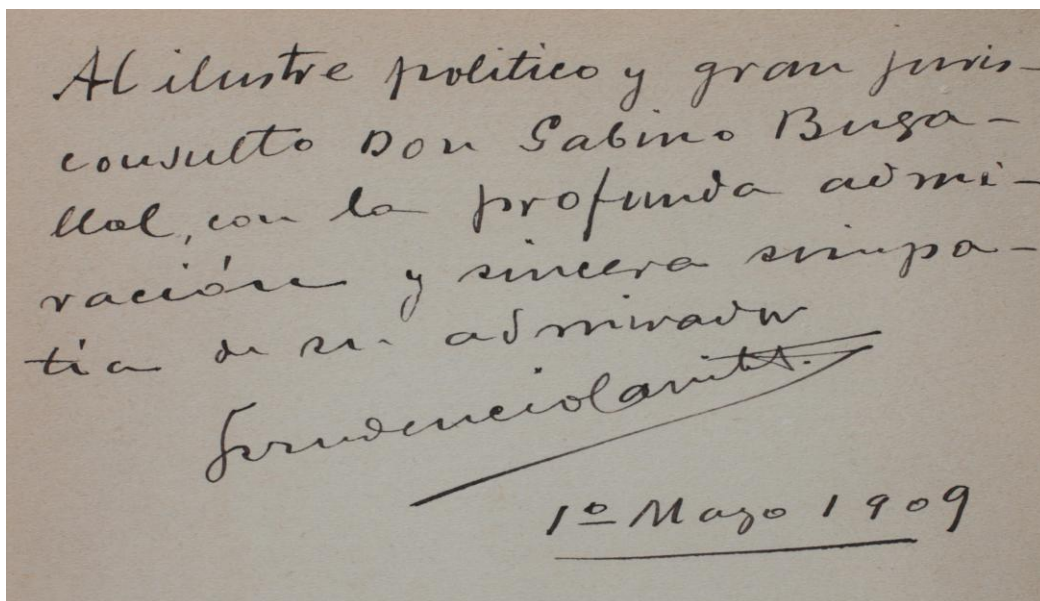 Al ilustre politico y gran juris-
consulto Don Gabino Buga-
llal, con la profunda admi-
ración y sincera simpa-
tía de su admirador
Prudencio Canitrot.
1º Mayo 1909